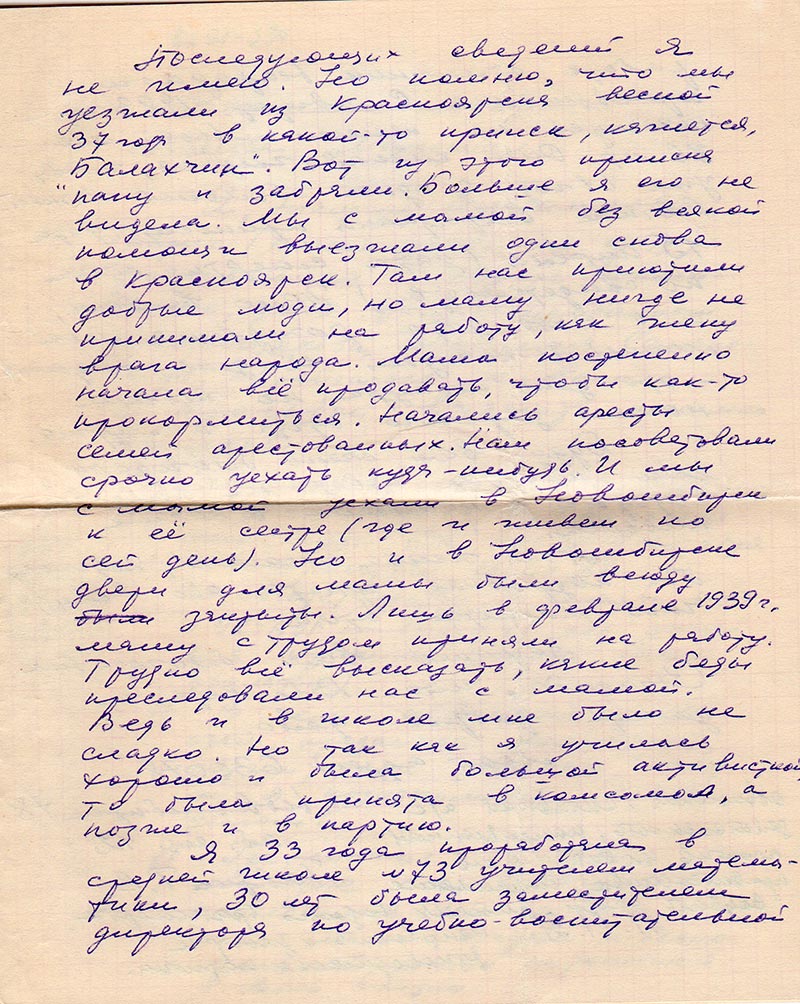 Последующих сведений я
не имею. Но помню, что мы
уезжали из Красноярска весной
37 года в какой-то прииск, кажется,
"Балахчин". Вот из этого прииска
папу и забрали. Больше я его не
видела. Мы с мамой без всякой
помощи выезжали одни снова
в Красноярск. Там нас приютили
добрые люди, но маму нигде не
принимали на работу, как жену
врага народа. Мама постепенно
начала всё продавать, чтобы как-то
прокормиться. Начались аресты
семей арестованных. Нам посоветовали
срочно уехать куда-нибудь. И мы
с мамой уехали в Новосибирск
к её сестре (где и живем по
сей день). Но и в Новосибирске
двери для мамы были всюду
были закрыты. Лишь в феврале 1939 г.
маму с трудом приняли на работу.
Трудно всё высказать, какие беды
преследовали нас с мамой.
Ведь и в школе мне было не
сладко. Но так как я училась
хорошо и была большой активисткой,
то была принята в комсомол, а
позже и в партию.
Я 33 года проработала в
средней школе №73 учителем матема-
тики, 30 лет была заместителем
директора по учебно-воспитательной